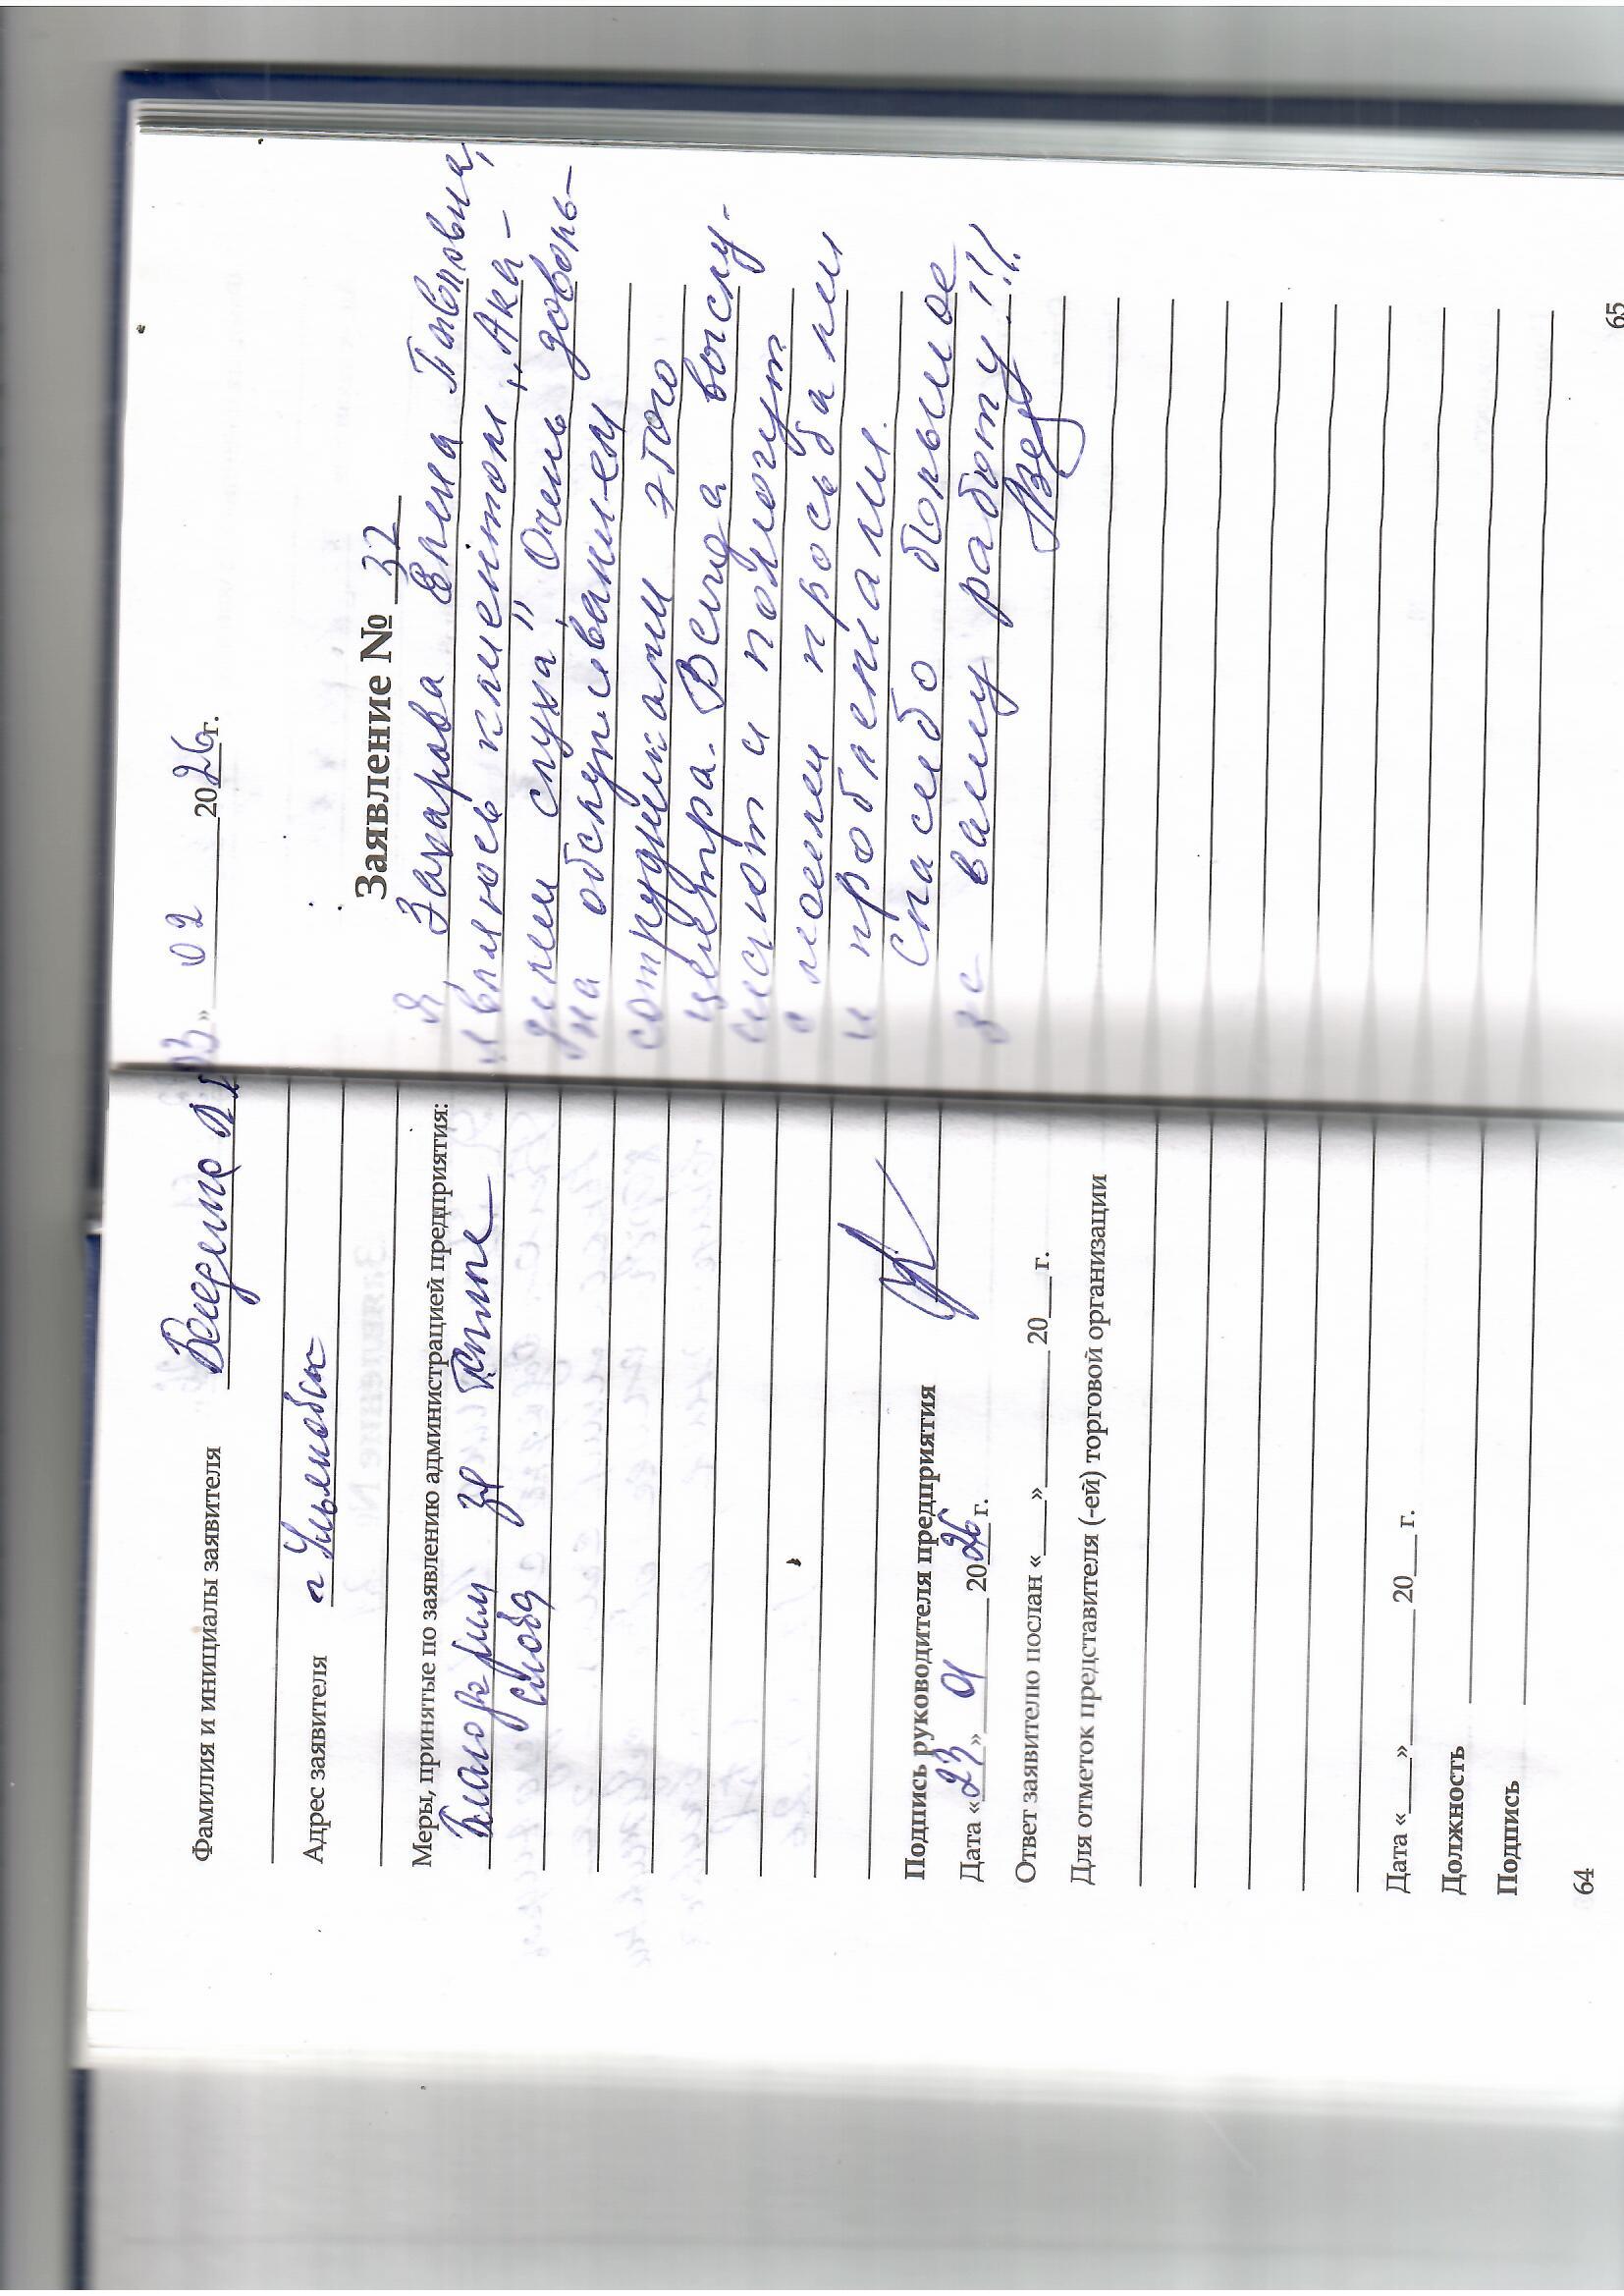 Фамилия и инициалы заявителя
Адрес заявителя г Ульяновск
Меры, принятые по заявлению администрацией предприятия:
Благодарим за теплые
слова
Подпись руководителя предприятия
Дата «23» 01 2026 г.
Ответ заявителю послан «___»________20___г.
Для отметок представителя (-ей) торговой организации
Дата «___»________20___г.
Должность
Подпись
64
03» 02 2026г.
Заявление № 32
Я Захарова Елена Павловна,
являюсь клиентом „Ака-
демии слуха" Очень доволь-
на обслуживанием
сотрудниками этого
центра. Всегда выслу-
шают и помогут
с моими просьбами
и проблемами.
Спасибо большое
за вашу работу!!!
65